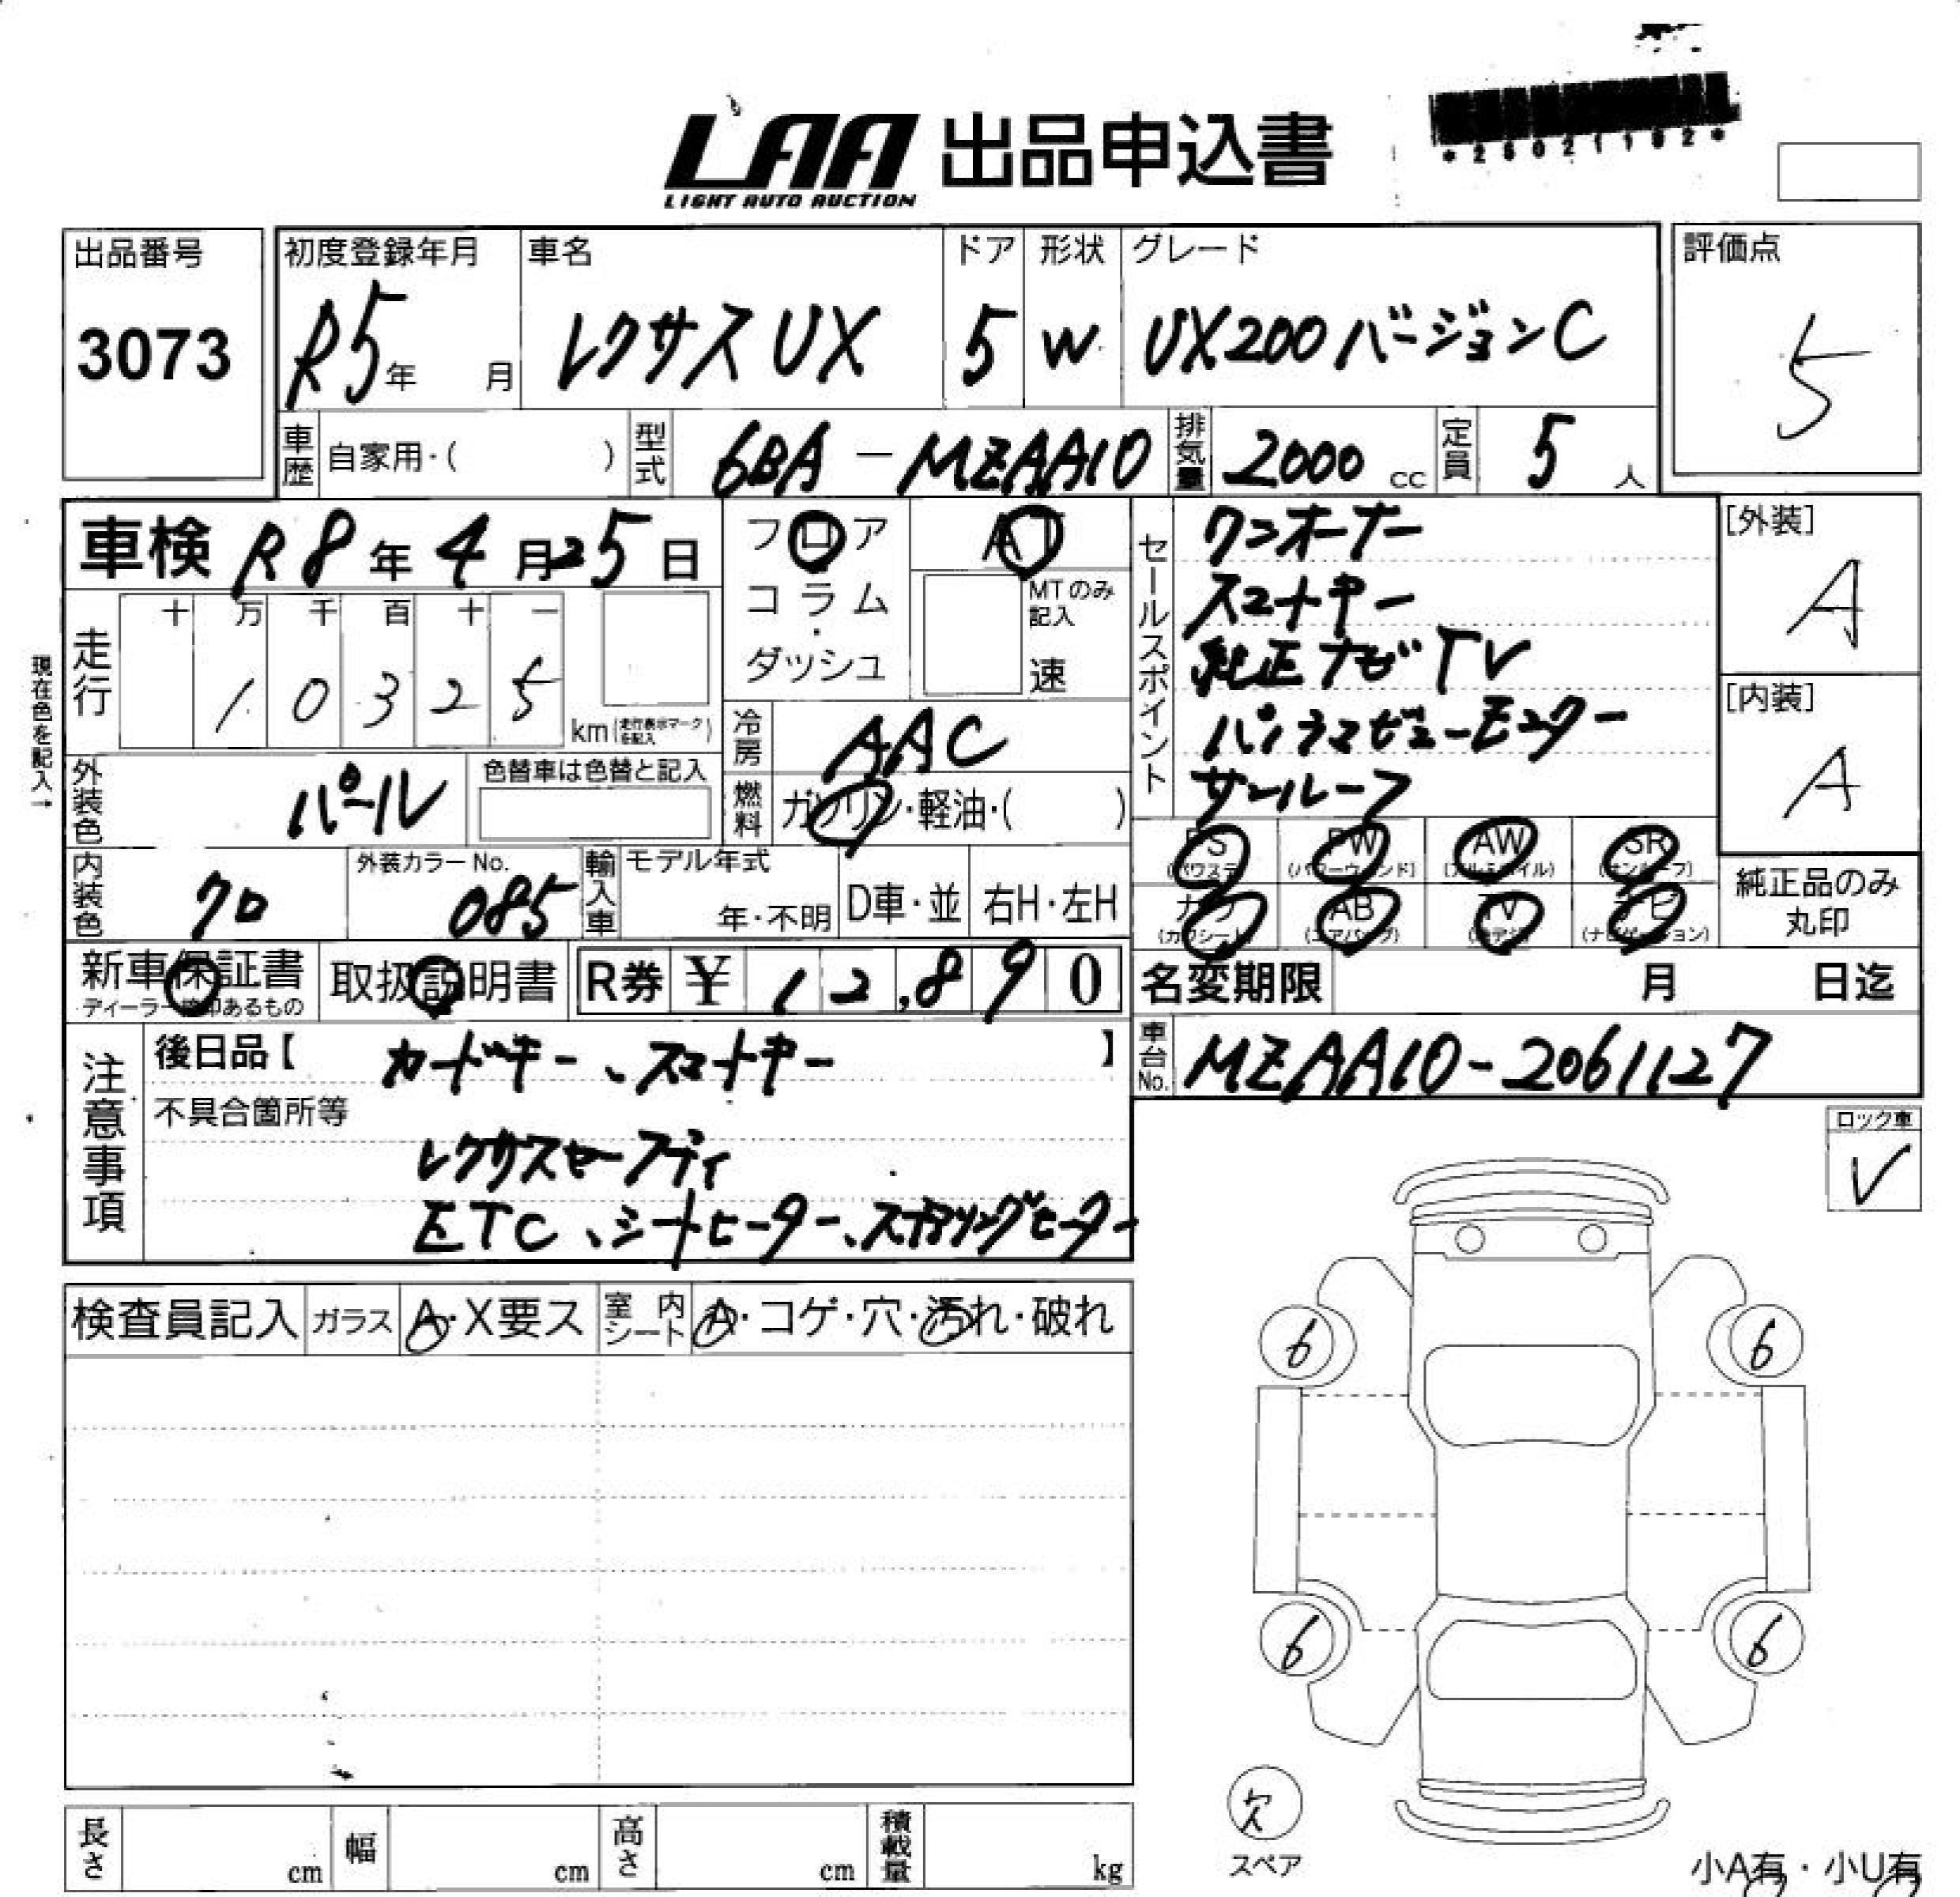 LAA 出品申込書
LIGHT AUTO AUCTION
*26021192*
出品番号
3073
初度登録年月
R5年 月
車名
レクサス UX
ドア
5
形状
W
グレード
UX200 バージョンC
評価点
5
車歴 自家用・( )
型式 6BA - MZAA10
排気量 2000 cc
定員 5 人
車検 R8年4月25日
フロア
コラム
・
ダッシュ
AT
MTのみ
記入
速
セールスポイント
ワンオーナー
スマートキー
純正ナビTV
パノラマビューモニター
サンルーフ
[外装]
A
[内装]
A
現在色を記入→
走行
十 万 千 百 十 一
1 0 3 2 5
km(走行表示マークを記入)
冷房 AAC
燃料 ガソリン・軽油・( )
外装色 パール
色替車は色替と記入
内装色 クロ
外装カラーNo.
085
輸入車
モデル年式
年・不明
D車・並
右H・左H
PS (パワステ)
PW (パワーウィンド)
AW (アルミホイル)
SR (サンルーフ)
カワ (カワシート)
AB (エアバッグ)
TV (地デジ)
ナビ (ナビゲーション)
純正品のみ
丸印
新車保証書
ディーラー捺印あるもの
取扱説明書
R券 ¥ 12,890
名変期限 月 日迄
注意事項
後日品【 カードキー、スマートキー 】
不具合箇所等
レクサスセーフティ
ETC、シートヒーター、ステアリングヒーター
車台No. MZAA10-2061127
ロック車
✓
検査員記入
ガラス A・X要ス
室内シート A・コゲ・穴・汚れ・破れ
6
6
6
6
欠
スペア
長さ cm
幅 cm
高さ cm
積載量 kg
小A有・小U有